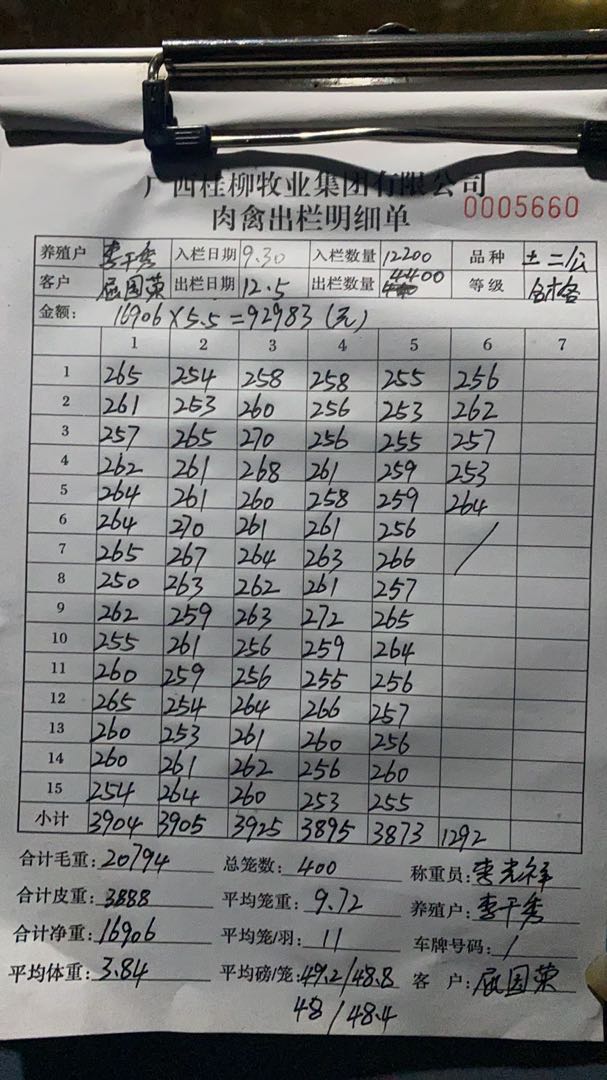 广西桂柳牧业集团有限公司
肉禽出栏明细单 0005660
养殖户 李干秀 入栏日期 9.30 入栏数量 12200 品种 土二/公
客户 屈国荣 出栏日期 12.5 出栏数量 4400 等级 合格
金额: 16906×5.5=92983(元)
1 2 3 4 5 6 7
1 265 254 258 258 255 256
2 261 253 260 256 253 262
3 257 265 270 256 255 257
4 262 261 268 261 259 253
5 264 261 260 258 259 264
6 264 270 261 261 256 /
7 265 267 264 263 266
8 250 263 262 261 257
9 262 259 263 272 265
10 255 261 256 259 264
11 260 259 256 255 256
12 265 254 264 266 257
13 260 253 261 260 256
14 260 261 262 256 260
15 254 264 260 253 255
小计 3904 3905 3925 3895 3873 1292
合计毛重: 20794 总笼数: 400 称重员: 李光祥
合计皮重: 3888 平均笼重: 9.72 养殖户: 李干秀
合计净重: 16906 平均笼/羽: 11 车牌号码: /
平均体重: 3.84 平均磅/笼: 49.2/48.8 客户: 屈国荣
48/48.4